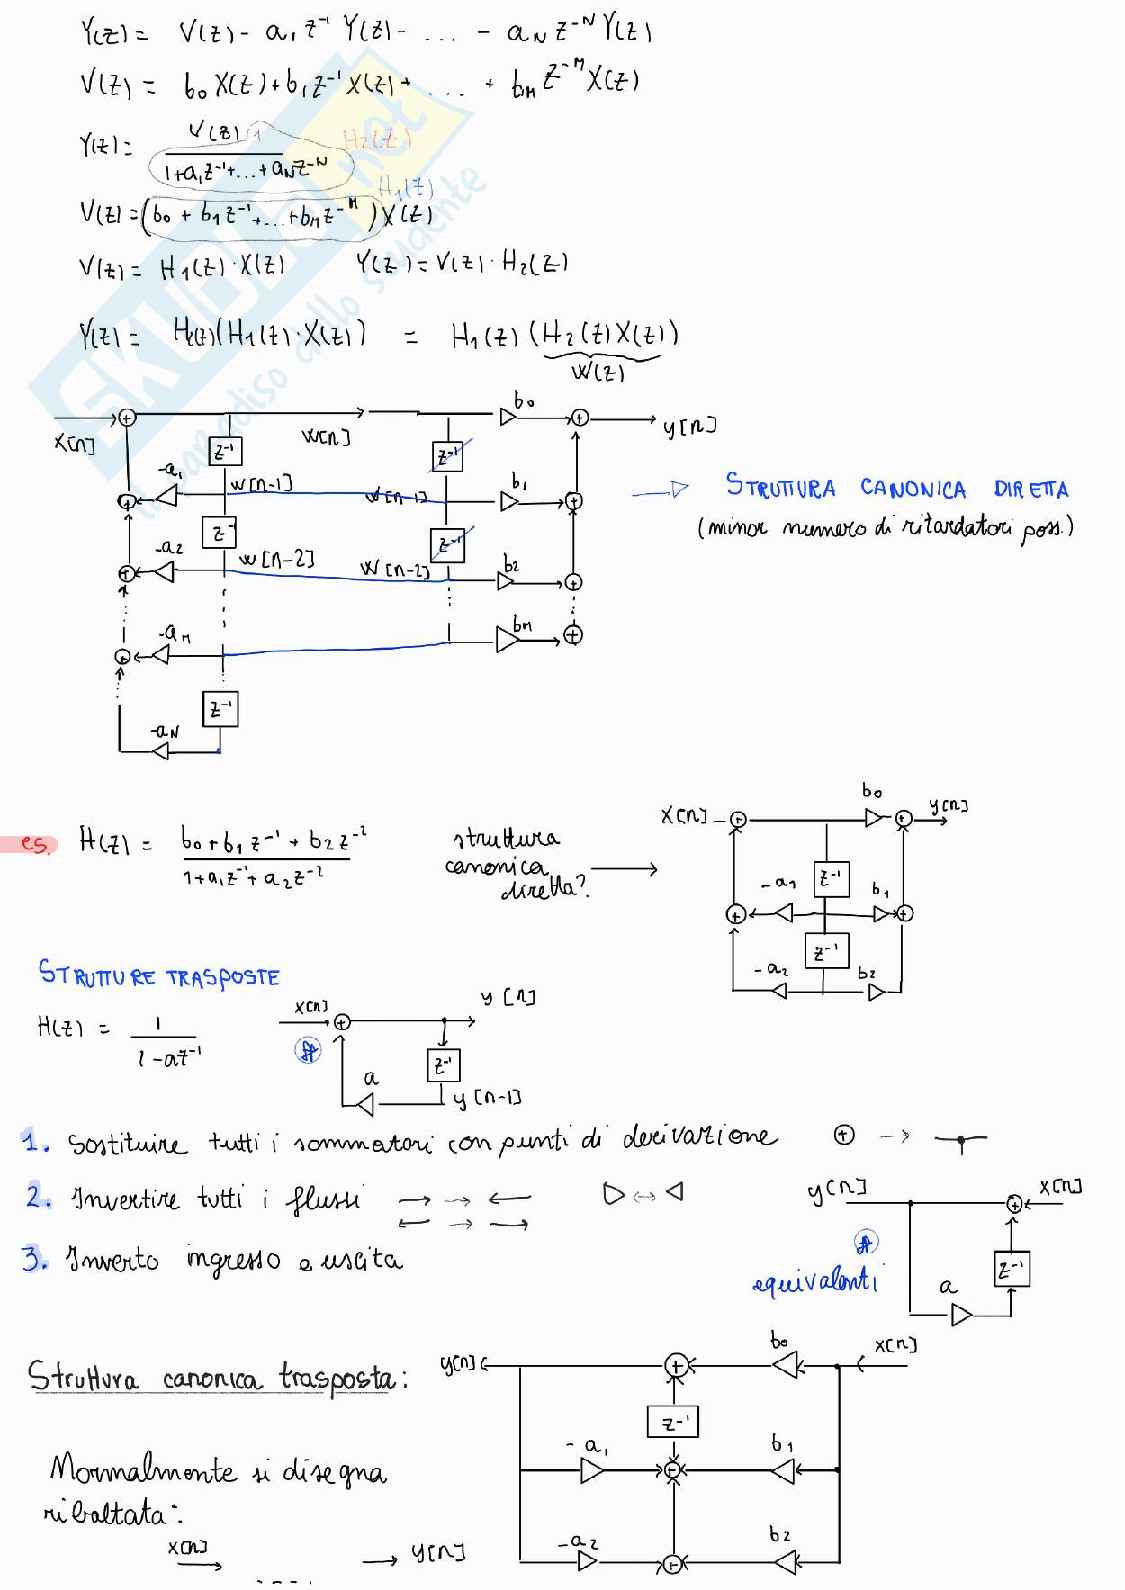 Y(z) = V(z) - a₁z⁻¹ Y(z) - ... - a_N z⁻ᴺ Y(z)
V(z) = b₀ X(z) + b₁z⁻¹ X(z) + ... + b_M z⁻ᴹ X(z)
Y(z) = V(z) 1 / 1 + a₁z⁻¹ + ... + a_N z⁻ᴺ H₂(z)
H₁(z)
V(z) = (b₀ + b₁z⁻¹ + ... + b_M z⁻ᴹ) X(z)
V(z) = H₁(z) · X(z) Y(z) = V(z) · H₂(z)
Y(z) = H₂(z)(H₁(z) · X(z)) = H₁(z) (H₂(z) X(z))
W(z)
SKUOLA.net
il paradiso dello studente
b₀
x[n] w[n] y[n]
z⁻¹ z⁻¹
-a₁ w[n-1] w[n-1] b₁
STRUTTURA CANONICA DIRETTA
(minor numero di ritardatori poss.)
z⁻¹ z⁻¹
-a₂ w[n-2] w[n-2] b₂
-a_M b_M
z⁻¹
-a_N
es. H(z) = b₀ + b₁z⁻¹ + b₂z⁻² / 1 + a₁z⁻¹ + a₂z⁻²
struttura
canonica
diretta?
x[n] b₀ y[n]
z⁻¹
-a₁ b₁
z⁻¹
-a₂ b₂
STRUTTURE TRASPOSTE
H(z) = 1 / 1 - az⁻¹
x[n] y[n]
z⁻¹
a y[n-1]
1. Sostituire tutti i sommatori con punti di derivazione
2. Invertire tutti i flussi
3. Inverto ingresso e uscita
y[n] x[n]
z⁻¹
a
equivalenti
Struttura canonica trasposta:
y[n] b₀ x[n]
z⁻¹
-a₁ b₁
-a₂ b₂
Normalmente si disegna
ribaltata:
x[n] y[n]